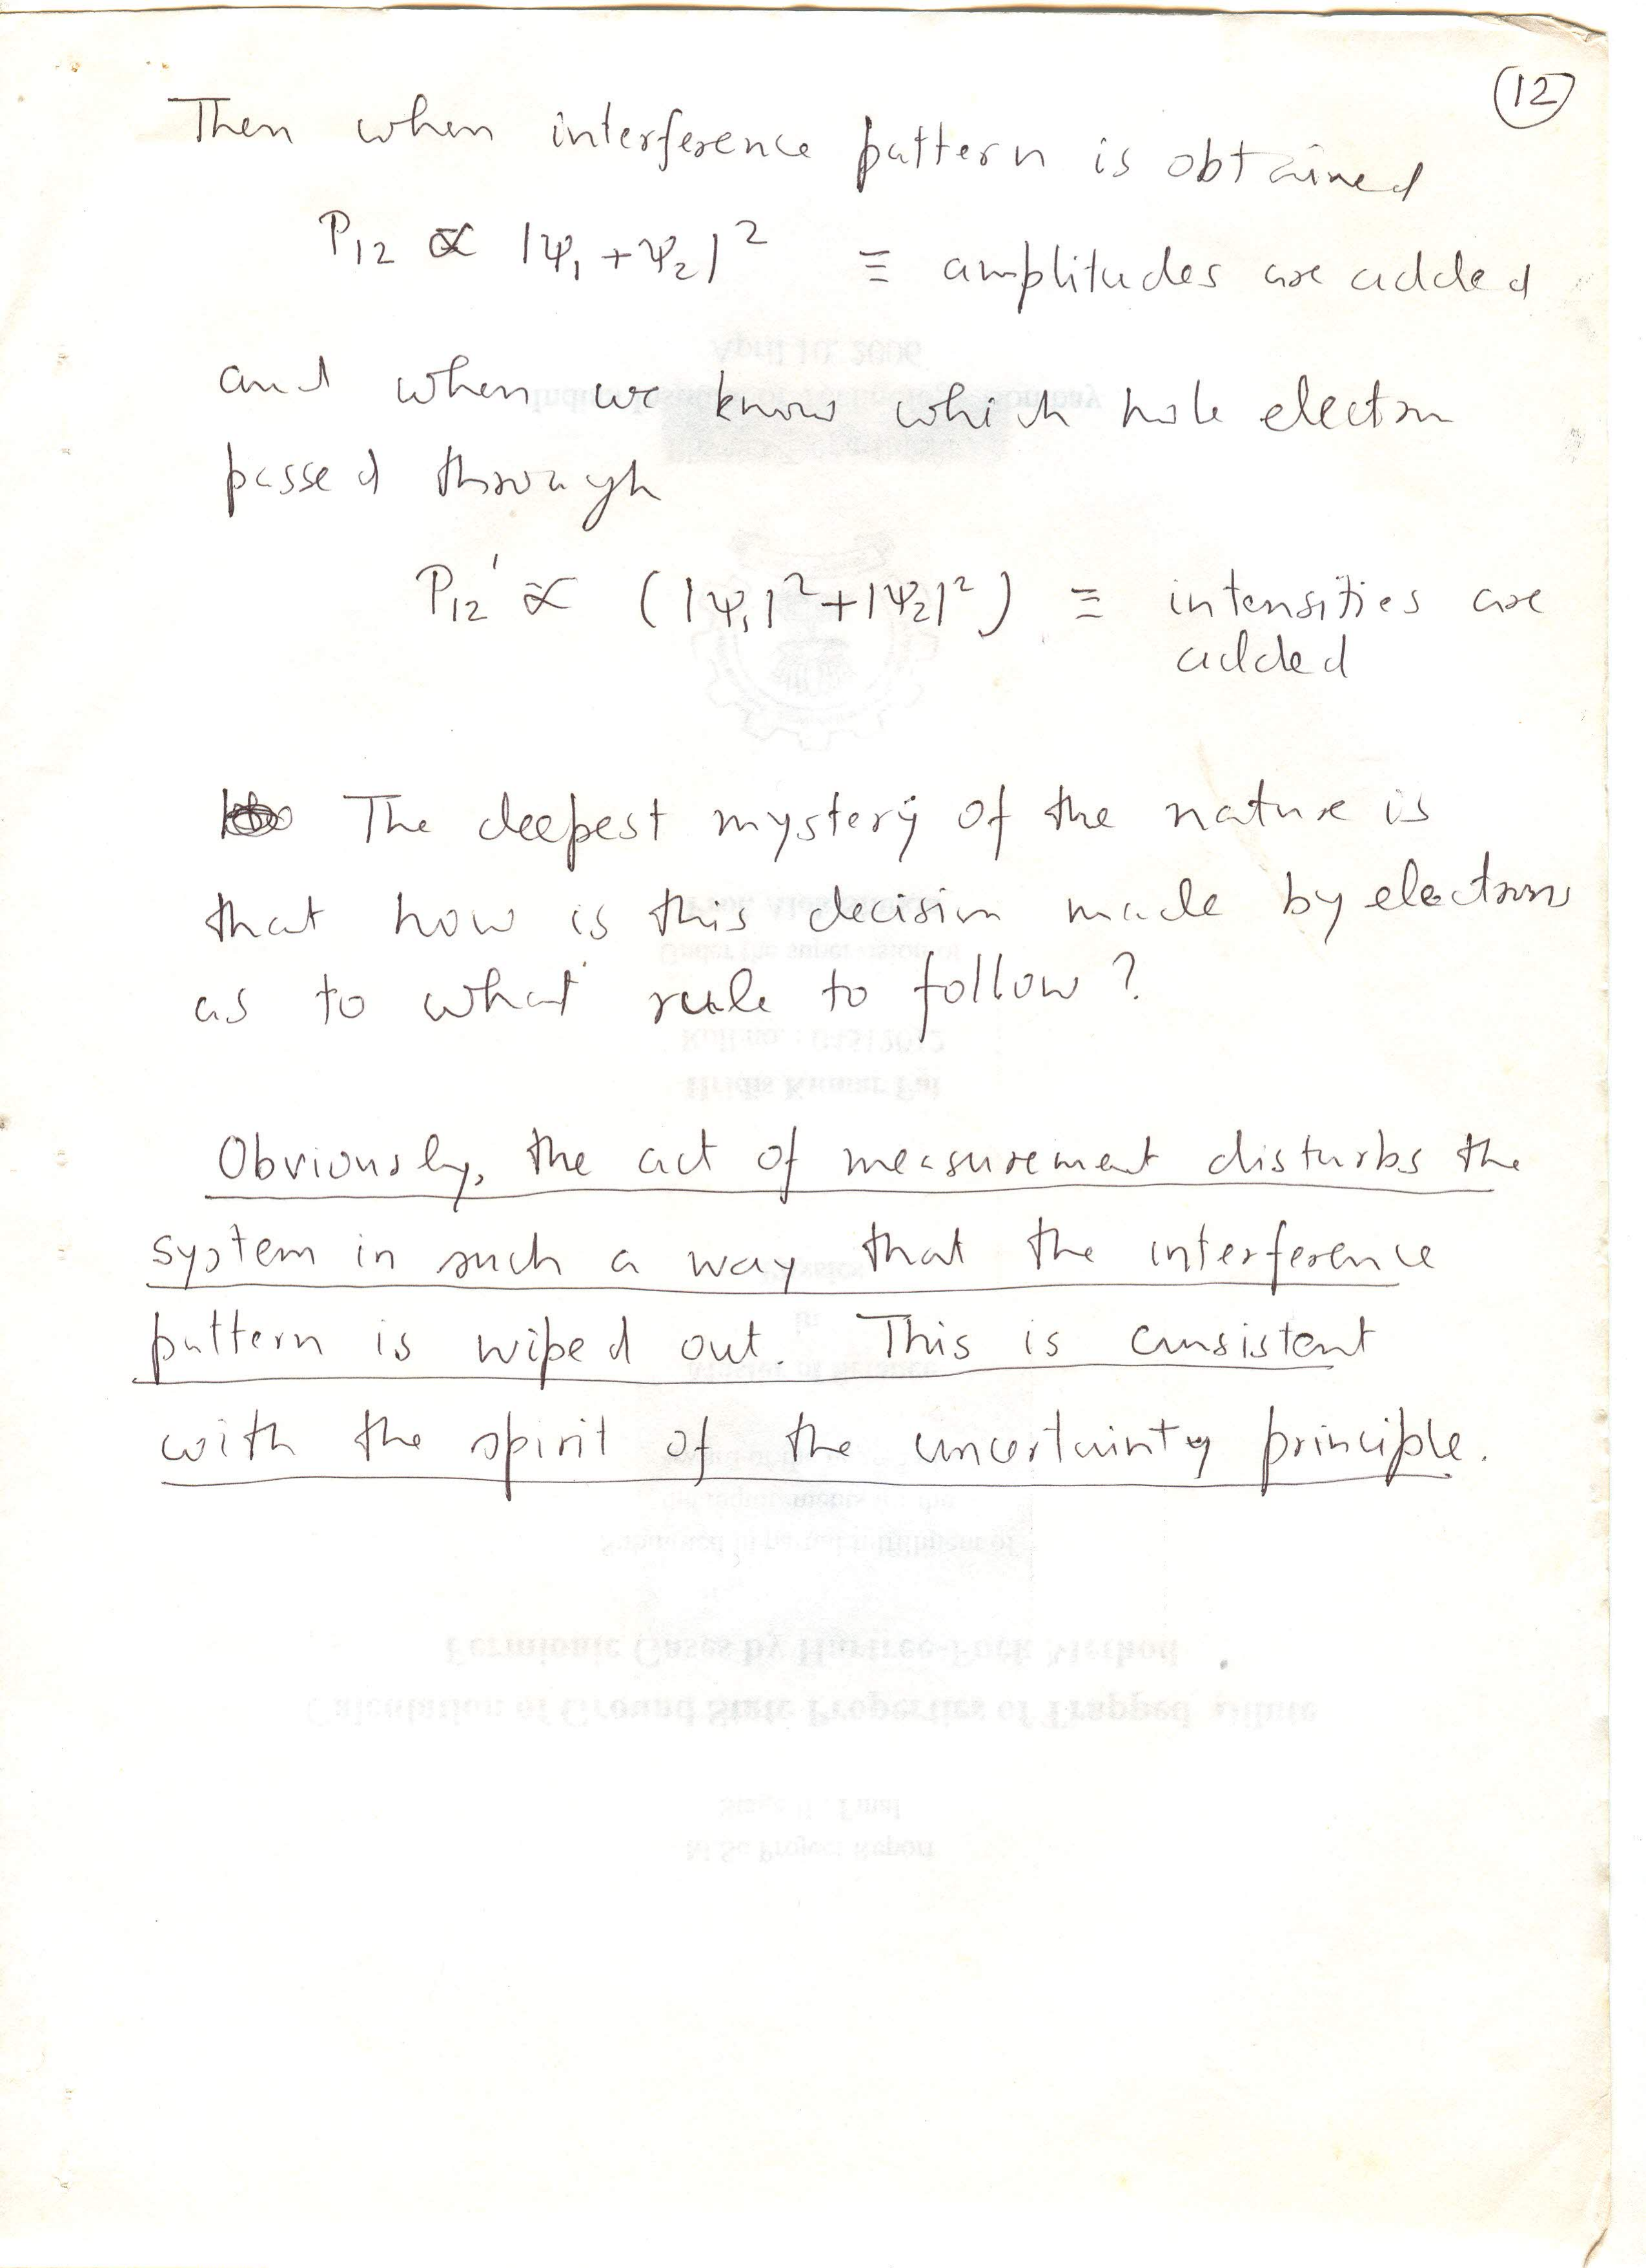 (12)
Then when interference pattern is obtained
P₁₂ ∝ |ψ₁+ψ₂|² ≡ amplitudes are added
and when we know which hole electron
passed through
P₁₂' ∝ (|ψ₁|²+|ψ₂|²) ≡ intensities are
added
The deepest mystery of the nature is
that how is this decision made by electrons
as to what rule to follow?
Obviously, the act of measurement disturbs the
system in such a way that the interference
pattern is wiped out. This is consistent
with the spirit of the uncertainty principle.